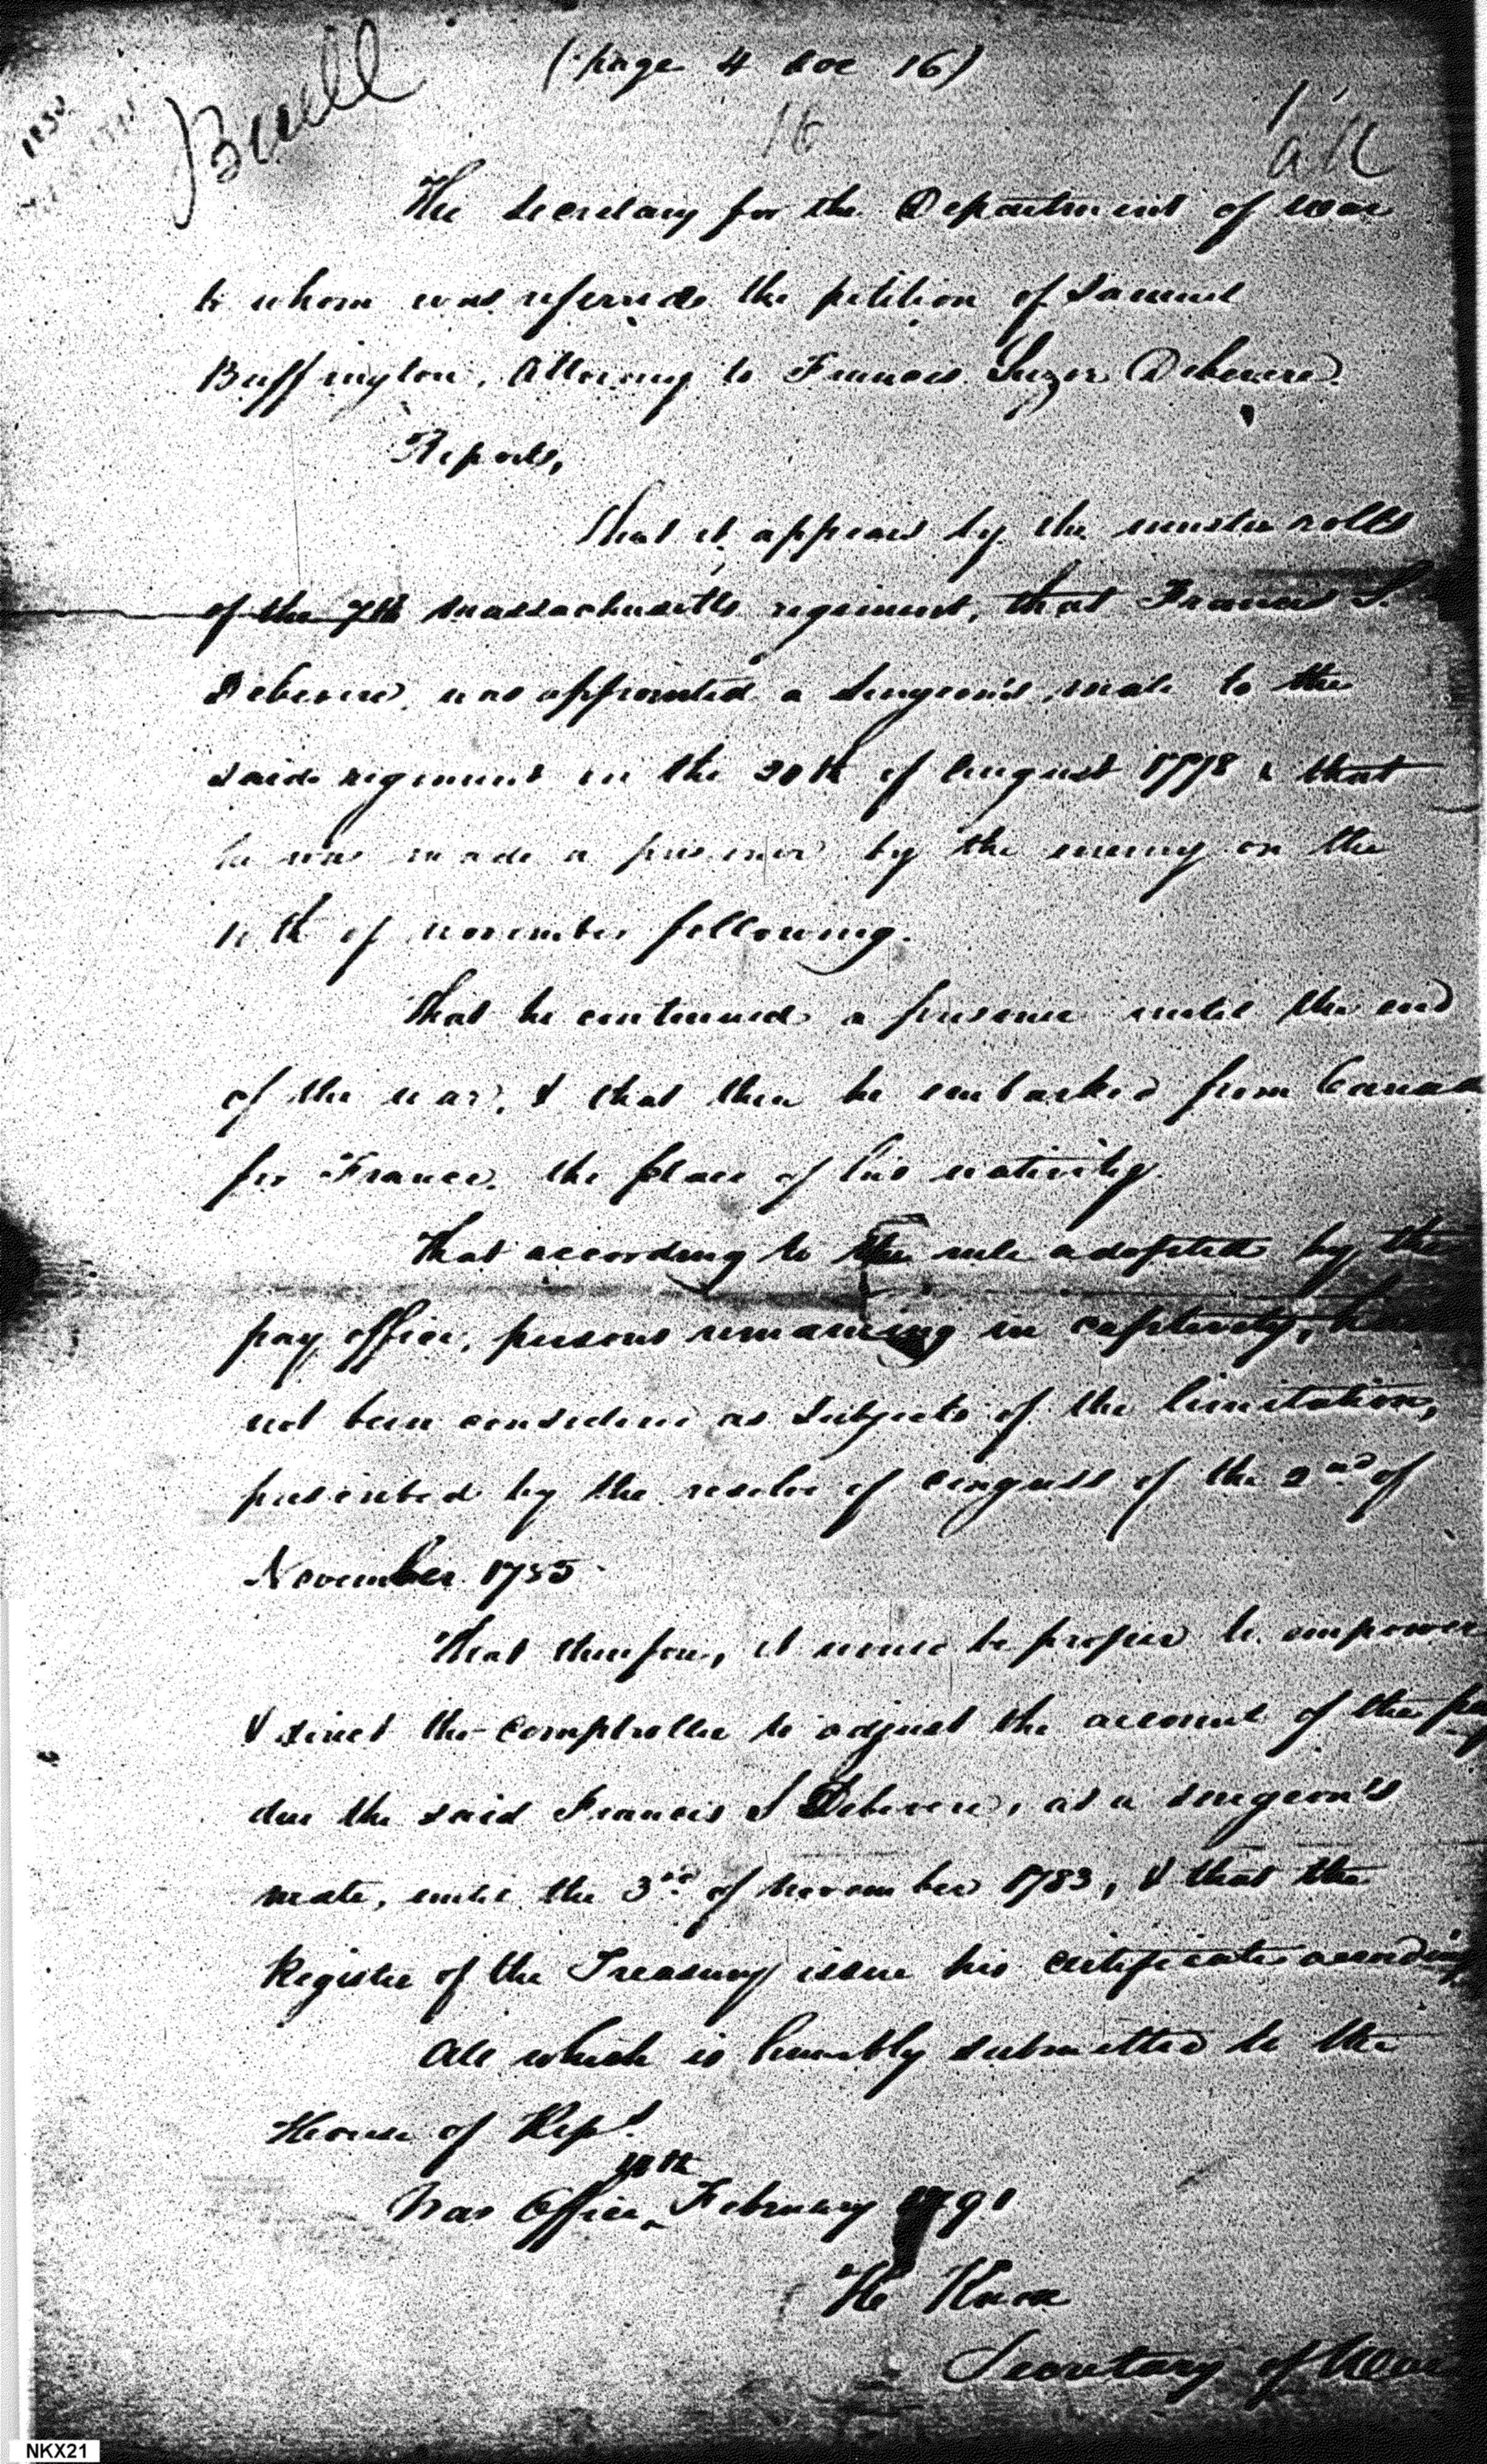 (page 4 doc 16)
Buell
16
The Secretary for the Department of War
to whom was referred the petition of Samuel
Buffington, Attorney to Francis Suzor Debevere.
Reports,
That it appears by the muster rolls
of the 7th Massachusetts regiment, that Francis S.
Debevere, was appointed a Surgeon's mate to the
said regiment on the 20th of August 1778 & that
he was made a prisoner by the enemy on the
11th of November following.
That he continued a prisoner until the end
of the war, & that then he embarked from Canada
for France, the place of his nativity.
That according to the rule adopted by the
pay office, persons remaining in captivity, have
not been considered as subjects of the limitation,
prescribed by the resolve of congress of the 2nd of
November 1785
That therefore, it would be proper to empower
& direct the comptroller to adjust the account of the pay
due the said Francis S Debevere, as a surgeon's
mate, until the 3rd of November 1783, & that the
Register of the Treasury issue his certificates accordingly
All which is humbly submitted to the
House of Reps.
War Office, February 1791
H Knox
Secretary of War
NKX21